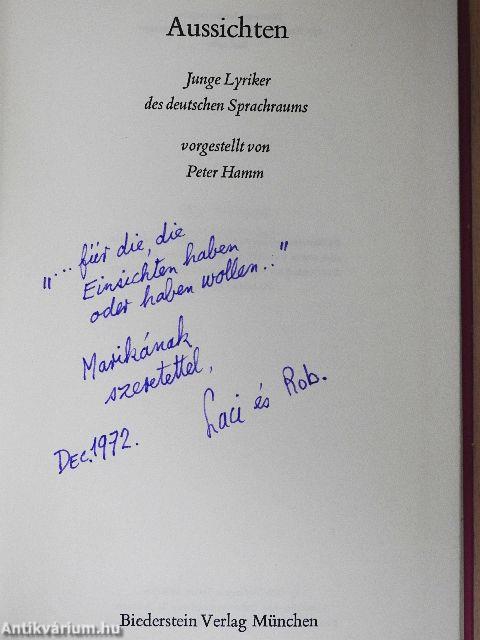 Aussichten
Junge Lyriker
des deutschen Sprachraums
vorgestellt von
Peter Hamm
"... für die, die
Einsichten haben
oder haben wollen..."
Marikának
szeretettel,
Laci és Rob.
Dec. 1972.
Biederstein Verlag München
Antikvárium.hu